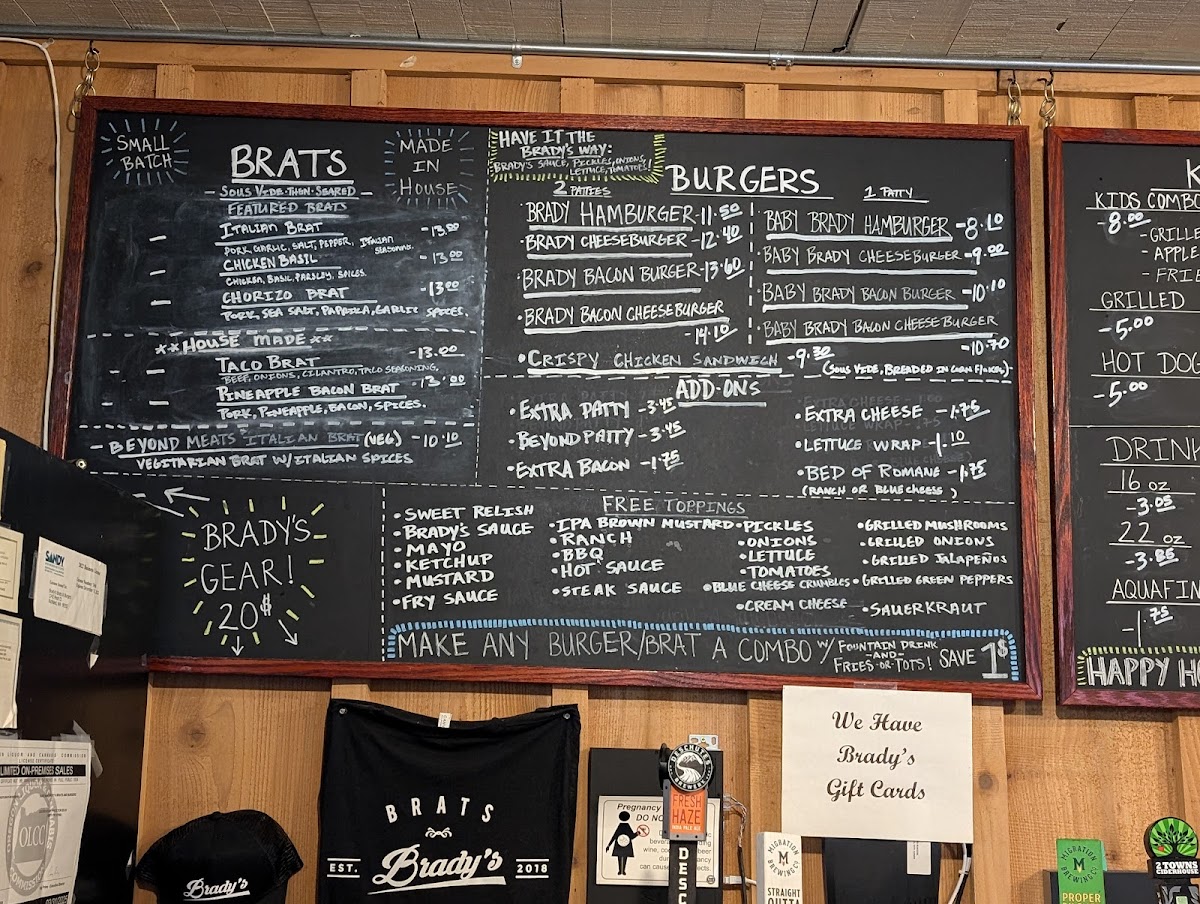 SMALL
BATCH
BRATS
MADE
IN
HOUSE
SOUS VIDE THEN SEARED
FEATURED BRATS
ITALIAN BRAT -13.00
PORK, GARLIC, SALT, PEPPER, ITALIAN SEASONING.
CHICKEN BASIL -13.00
CHICKEN, BASIL, PARSLEY, SPICES.
CHORIZO BRAT -13.00
PORK, SEA SALT, PAPRIKA, GARLIC SPICES.
**HOUSE MADE**
TACO BRAT -13.00
BEEF, ONIONS, CILANTRO, TACO SEASONING,
PINEAPPLE BACON BRAT -13.00
PORK, PINEAPPLE, BACON, SPICES.
BEYOND MEATS ITALIAN BRAT (VEG) -10.10
VEGITARIAN BRAT W/ITALIAN SPICES
HAVE IT THE
BRADY'S WAY:
BRADY'S SAUCE, PICKLES, ONIONS,
LETTUCE, TOMATOES!
BURGERS
2 PATTIES
BRADY HAMBURGER -11.50
BRADY CHEESEBURGER -12.40
BRADY BACON BURGER -13.60
BRADY BACON CHEESEBURGER
-14.10
1 PATTY
BABY BRADY HAMBURGER -8.10
BABY BRADY CHEESEBURGER -9.00
BABY BRADY BACON BURGER -10.10
BABY BRADY BACON CHEESEBURGER
-10.70
•CRISPY CHICKEN SANDWICH -9.30
(SOUS VIDE, BREADED IN CORN FLAKES)
ADD-ONS
•EXTRA PATTY -3.45
•BEYOND PATTY -3.45
•EXTRA BACON -1.75
•EXTRA CHEESE -1.75
•LETTUCE WRAP -1.10
•BED OF ROMANE -1.75
(RANCH OR BLUE CHEESE)
BRADY'S
GEAR!
20$
FREE TOPPINGS
•SWEET RELISH
•BRADY'S SAUCE
•MAYO
•KETCHUP
•MUSTARD
•FRY SAUCE
•IPA BROWN MUSTARD
•RANCH
•BBQ
•HOT SAUCE
•STEAK SAUCE
•PICKLES
•ONIONS
•LETTUCE
•TOMATOES
•BLUE CHEESE CRUMBLES
•CREAM CHEESE
•GRILLED MUSHROOMS
•GRILLED ONIONS
•GRILLED JALAPEÑOS
•GRILLED GREEN PEPPERS
•SAUERKRAUT
MAKE ANY BURGER/BRAT A COMBO W/ FOUNTAIN DRINK
-AND-
FRIES -OR- TOTS! SAVE 1$
K
KIDS COMBO
-8.00
-GRILLE
APPLE
-FRIE
GRILLED
-5.00
HOT DOG
-5.00
DRINK
16 oz
-3.05
22 oz
-3.85
AQUAFIN
-1.75
HAPPY HO
SANDY
LIMITED ON-PREMISES SALES
OLCC
Brady's
BRATS
EST. Brady's 2018
Pregnancy
DO NO
DESCHUTES
BREWERY
FRESH
HAZE
DESC
We Have
Brady's
Gift Cards
MIGRATION
BREWING CO.
STRAIGHT
OUTTA
MIGRATION
M
BREWING
PROPER
2 TOWNS
CIDERHOUSE